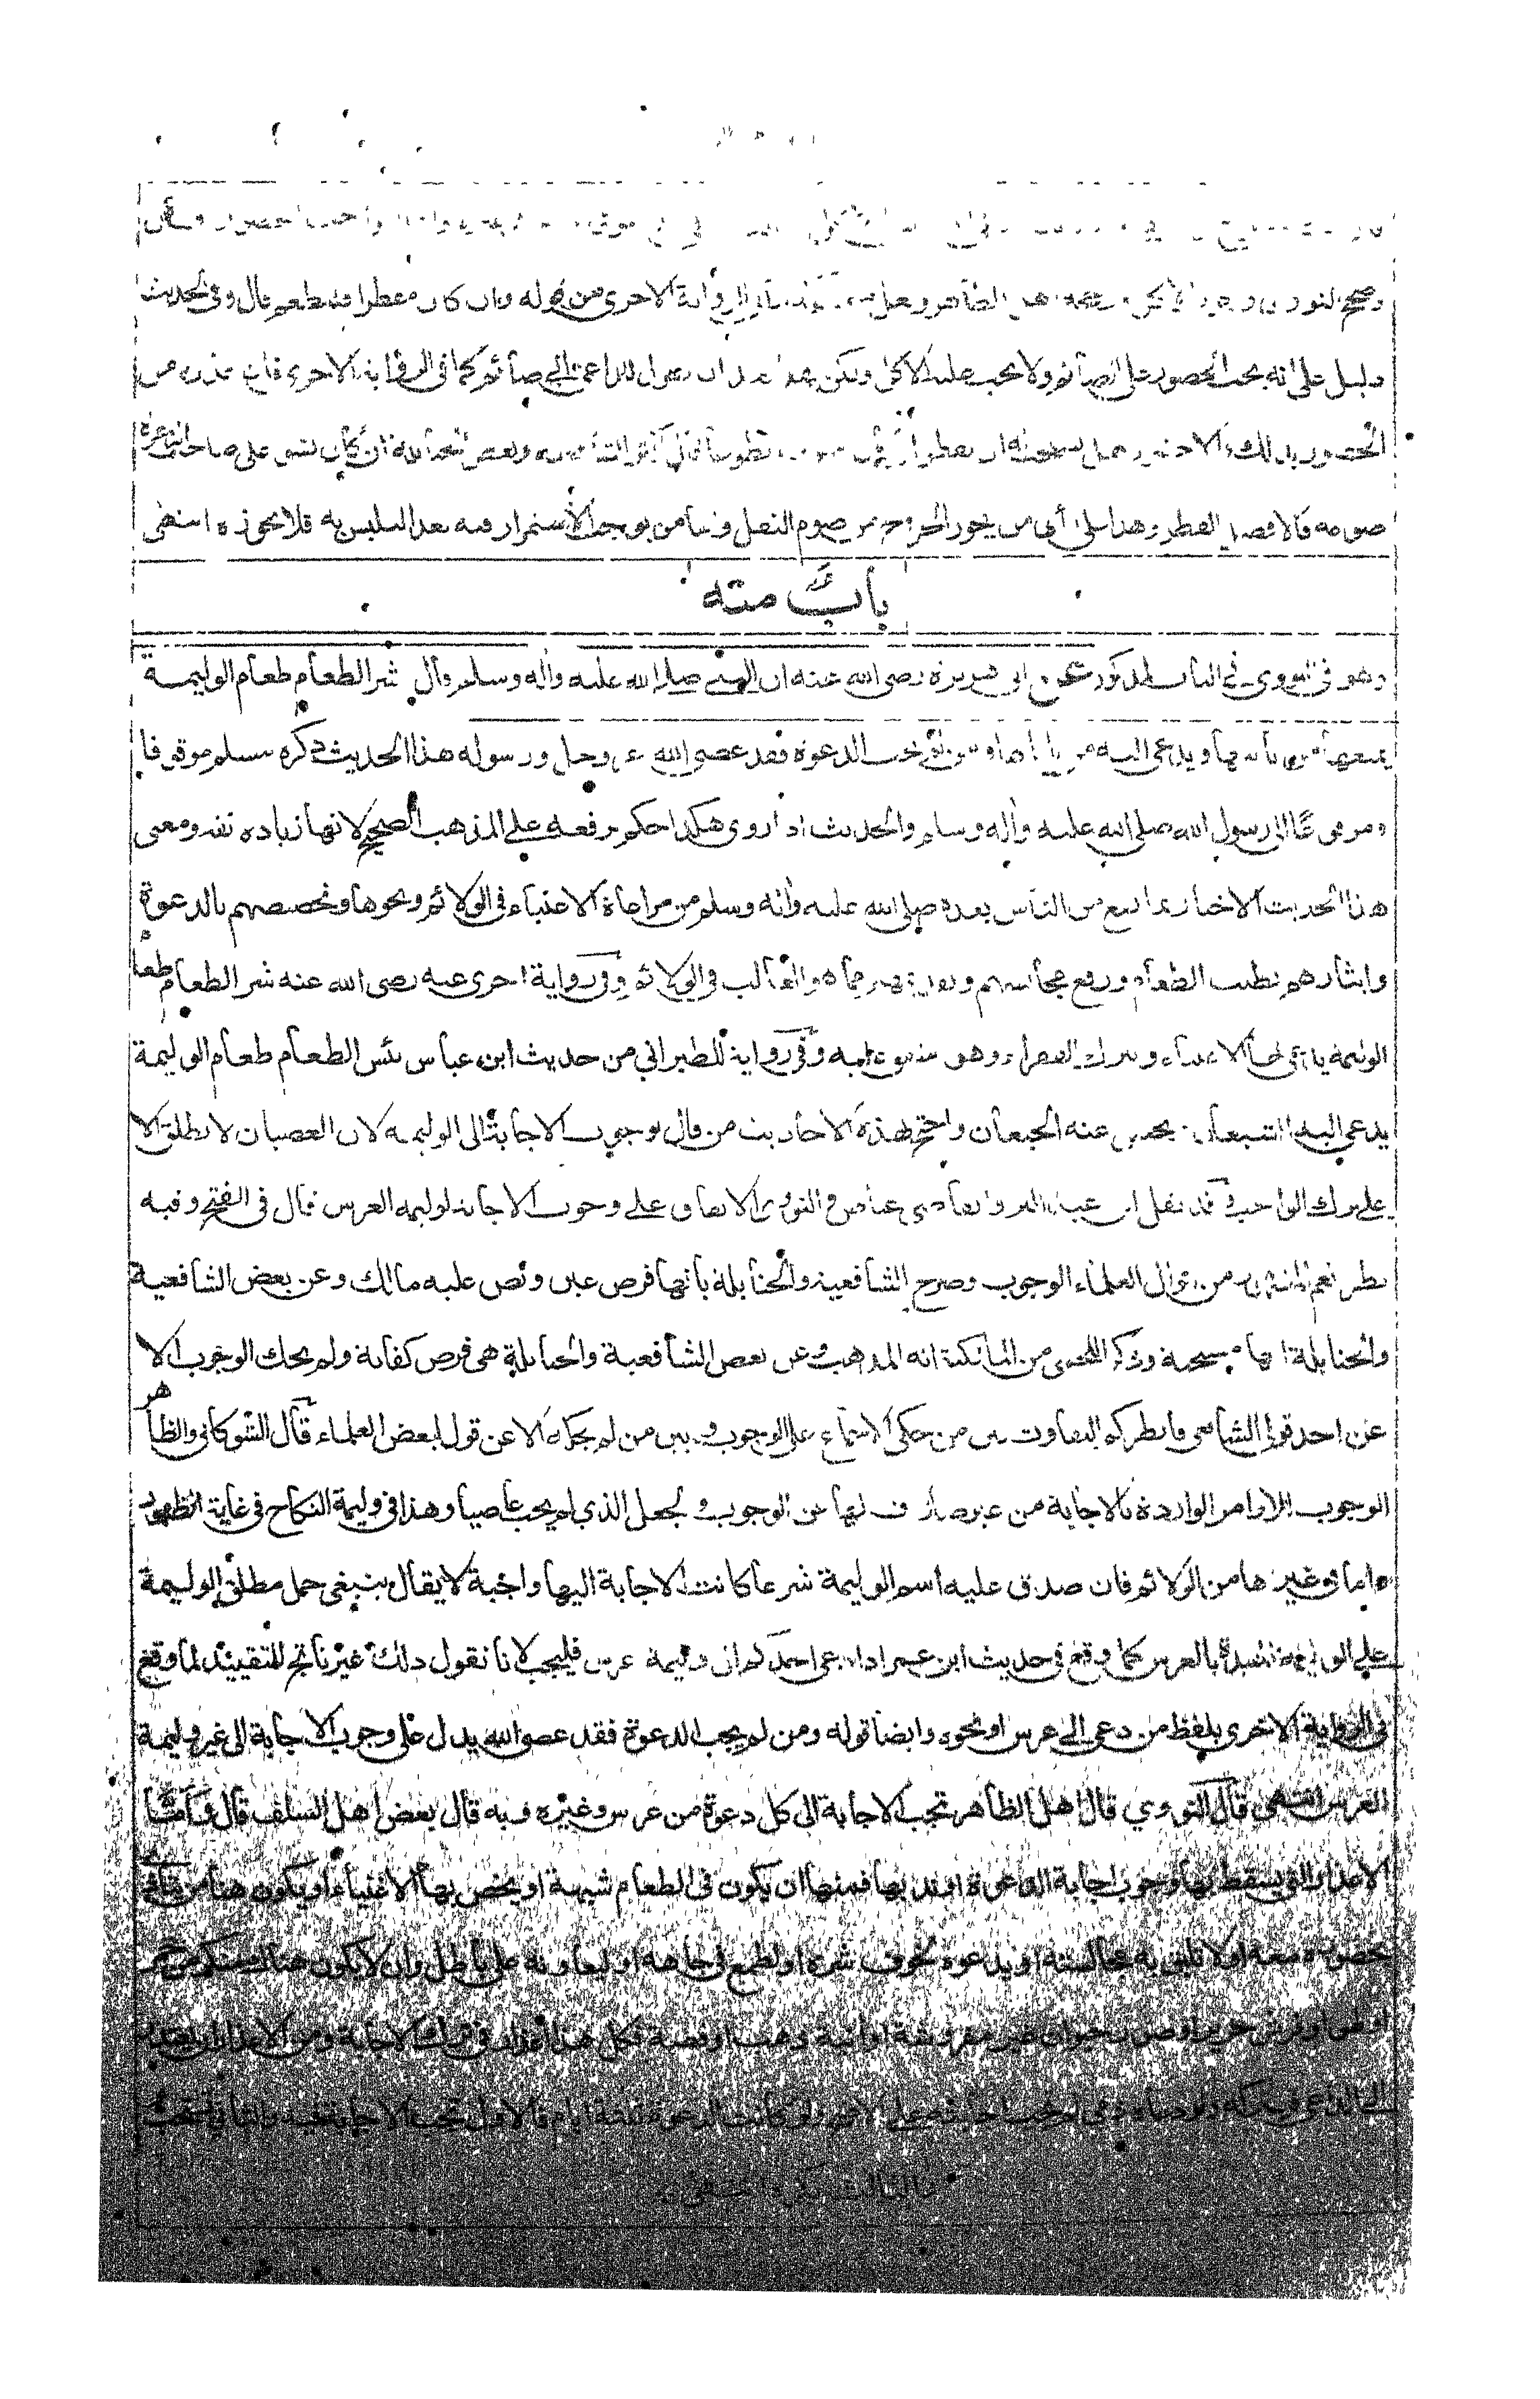 وصحح النووي الرواية الاخرى من قوله وان كان مفطرا فليطعم قال وفي الحديث
دليل على انه يجب الحضور على الصائم ولا يجب عليه الاكل ولكن هذا بعد ان يقول للداعي اني صائم كما في الرواية الاخرى فان عذره من
الحضور بذلك والا حضر وهل يستحب له ان يفطر ان كان صومه تطوعا قال اكثر الشافعية وبعض الحنابلة ان كان يشق على صاحب الدعوة
صومه فالافضل الفطر وهذا على رأي من يجوز الخروج من صوم النفل واما من يوجب الاستمرار فيه بعد التلبس به فلا يجوزه انتهى
باب منه
وهو في النووي في الباب المذكور عن ابي هريرة رضي الله عنه ان النبي صلى الله عليه وآله وسلم قال شر الطعام طعام الوليمة
يمنعها من يأتيها ويدعى اليها من يأباها ومن لم يجب الدعوة فقد عصى الله عز وجل ورسوله هذا الحديث ذكره مسلم موقوفا
ومرفوعا الى رسول الله صلى الله عليه وآله وسلم والحديث اذا روي هكذا حكم برفعه على المذهب الصحيح لانها زيادة ثقة ومعنى
هذا الحديث الاخبار بما يقع من الناس بعده صلى الله عليه وآله وسلم من مراعاة الاغنياء في الولائم ونحوها وتخصيصهم بالدعوة
وايثارهم بطيب الطعام ورفع مجالسهم وتقديمهم مما هو الغالب في الولائم وفي رواية اخرى عنه رضي الله عنه شر الطعام طعام
الوليمة يدعى لها الاغنياء ويترك الفقراء وهو متفق عليه وفي رواية للطبراني من حديث ابن عباس بئس الطعام طعام الوليمة
يدعى اليه الشبعان ويحبس عنه الجيعان واحتج بهذه الاحاديث من قال بوجوب الاجابة الى الوليمة لان العصيان لا يطلق الا
على ترك الواجب وقد نقل ابن عبد البر والقاضي عياض والنووي الاتفاق على وجوب الاجابة لوليمة العرس قال في الفتح وفيه
نظر نعم المشهور من اقوال العلماء الوجوب وصرح الشافعية والحنابلة بانها فرض عين ونص عليه مالك وعن بعض الشافعية
والحنابلة انها مستحبة وذكر اللخمي من المالكية انه المذهب وعن بعض الشافعية والحنابلة هي فرض كفاية ولم يحك الوجوب الا
عن احد قولي الشافعي فانظر كم التفاوت بين من حكى الاجماع على الوجوب وبين من لم يحكه الا عن قول لبعض العلماء قال الشوكاني والظاهر
الوجوب للاوامر الواردة بالاجابة من غير صارف لها عن الوجوب ولجعل الذي لم يجب عاصيا وهذا في وليمة النكاح في غاية الظهور
واما في غيرها من الولائم فان صدق عليه اسم الوليمة شرعا كانت الاجابة اليها واجبة لا يقال ينبغي حمل مطلق الوليمة
على الوليمة المقيدة بالعرس كما وقع في حديث ابن عمر اذا دعي احدكم الى وليمة عرس فليجب لانا نقول ذلك غير ناتج للتقييد لما وقع
في الرواية الاخرى بلفظ من دعي الى عرس او نحوه وايضا قوله ومن لم يجب الدعوة فقد عصى الله يدل على وجوب الاجابة الى غير وليمة
العرس انتهى قال النووي قال اهل الظاهر تجب الاجابة الى كل دعوة من عرس وغيره وبه قال بعض اهل السلف قال واما
الاعذار التي يسقط بها وجوب اجابة الدعوة او ندبها فمنها ان يكون في الطعام شبهة او يخص بها الاغنياء او يكون هناك من يتأذى
بحضوره معه او لا تليق به مجالسته او يدعوه لخوف شره او لطمع في جاهه او ليعاونه على باطل وان لا يكون هناك منكر من خمر
او لهو او فرش حرير او صور حيوان غير مفروشة او آنية ذهب او فضة فكل هذا اعذار في ترك الاجابة ومن الاعذار ان يعتذر
الى الداعي فيتركه ولو كانت الدعوة ثلثة ايام فالاول تجب الاجابة فيه والثاني تستحب
والثالث تكره انتهى